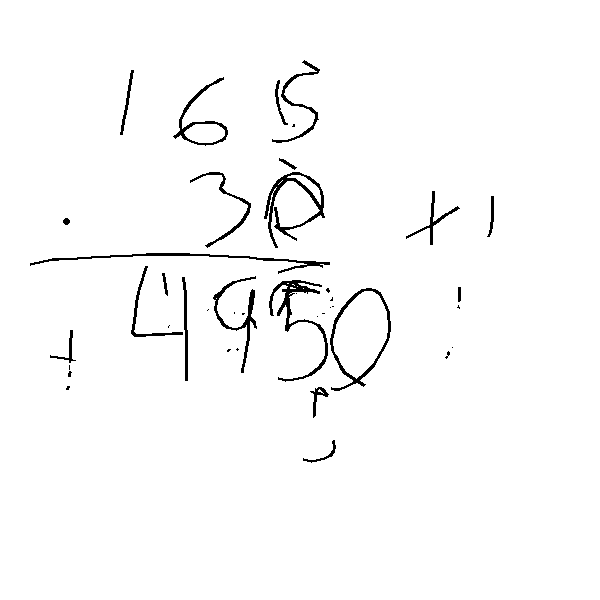 165
. 30 +1
4950
+